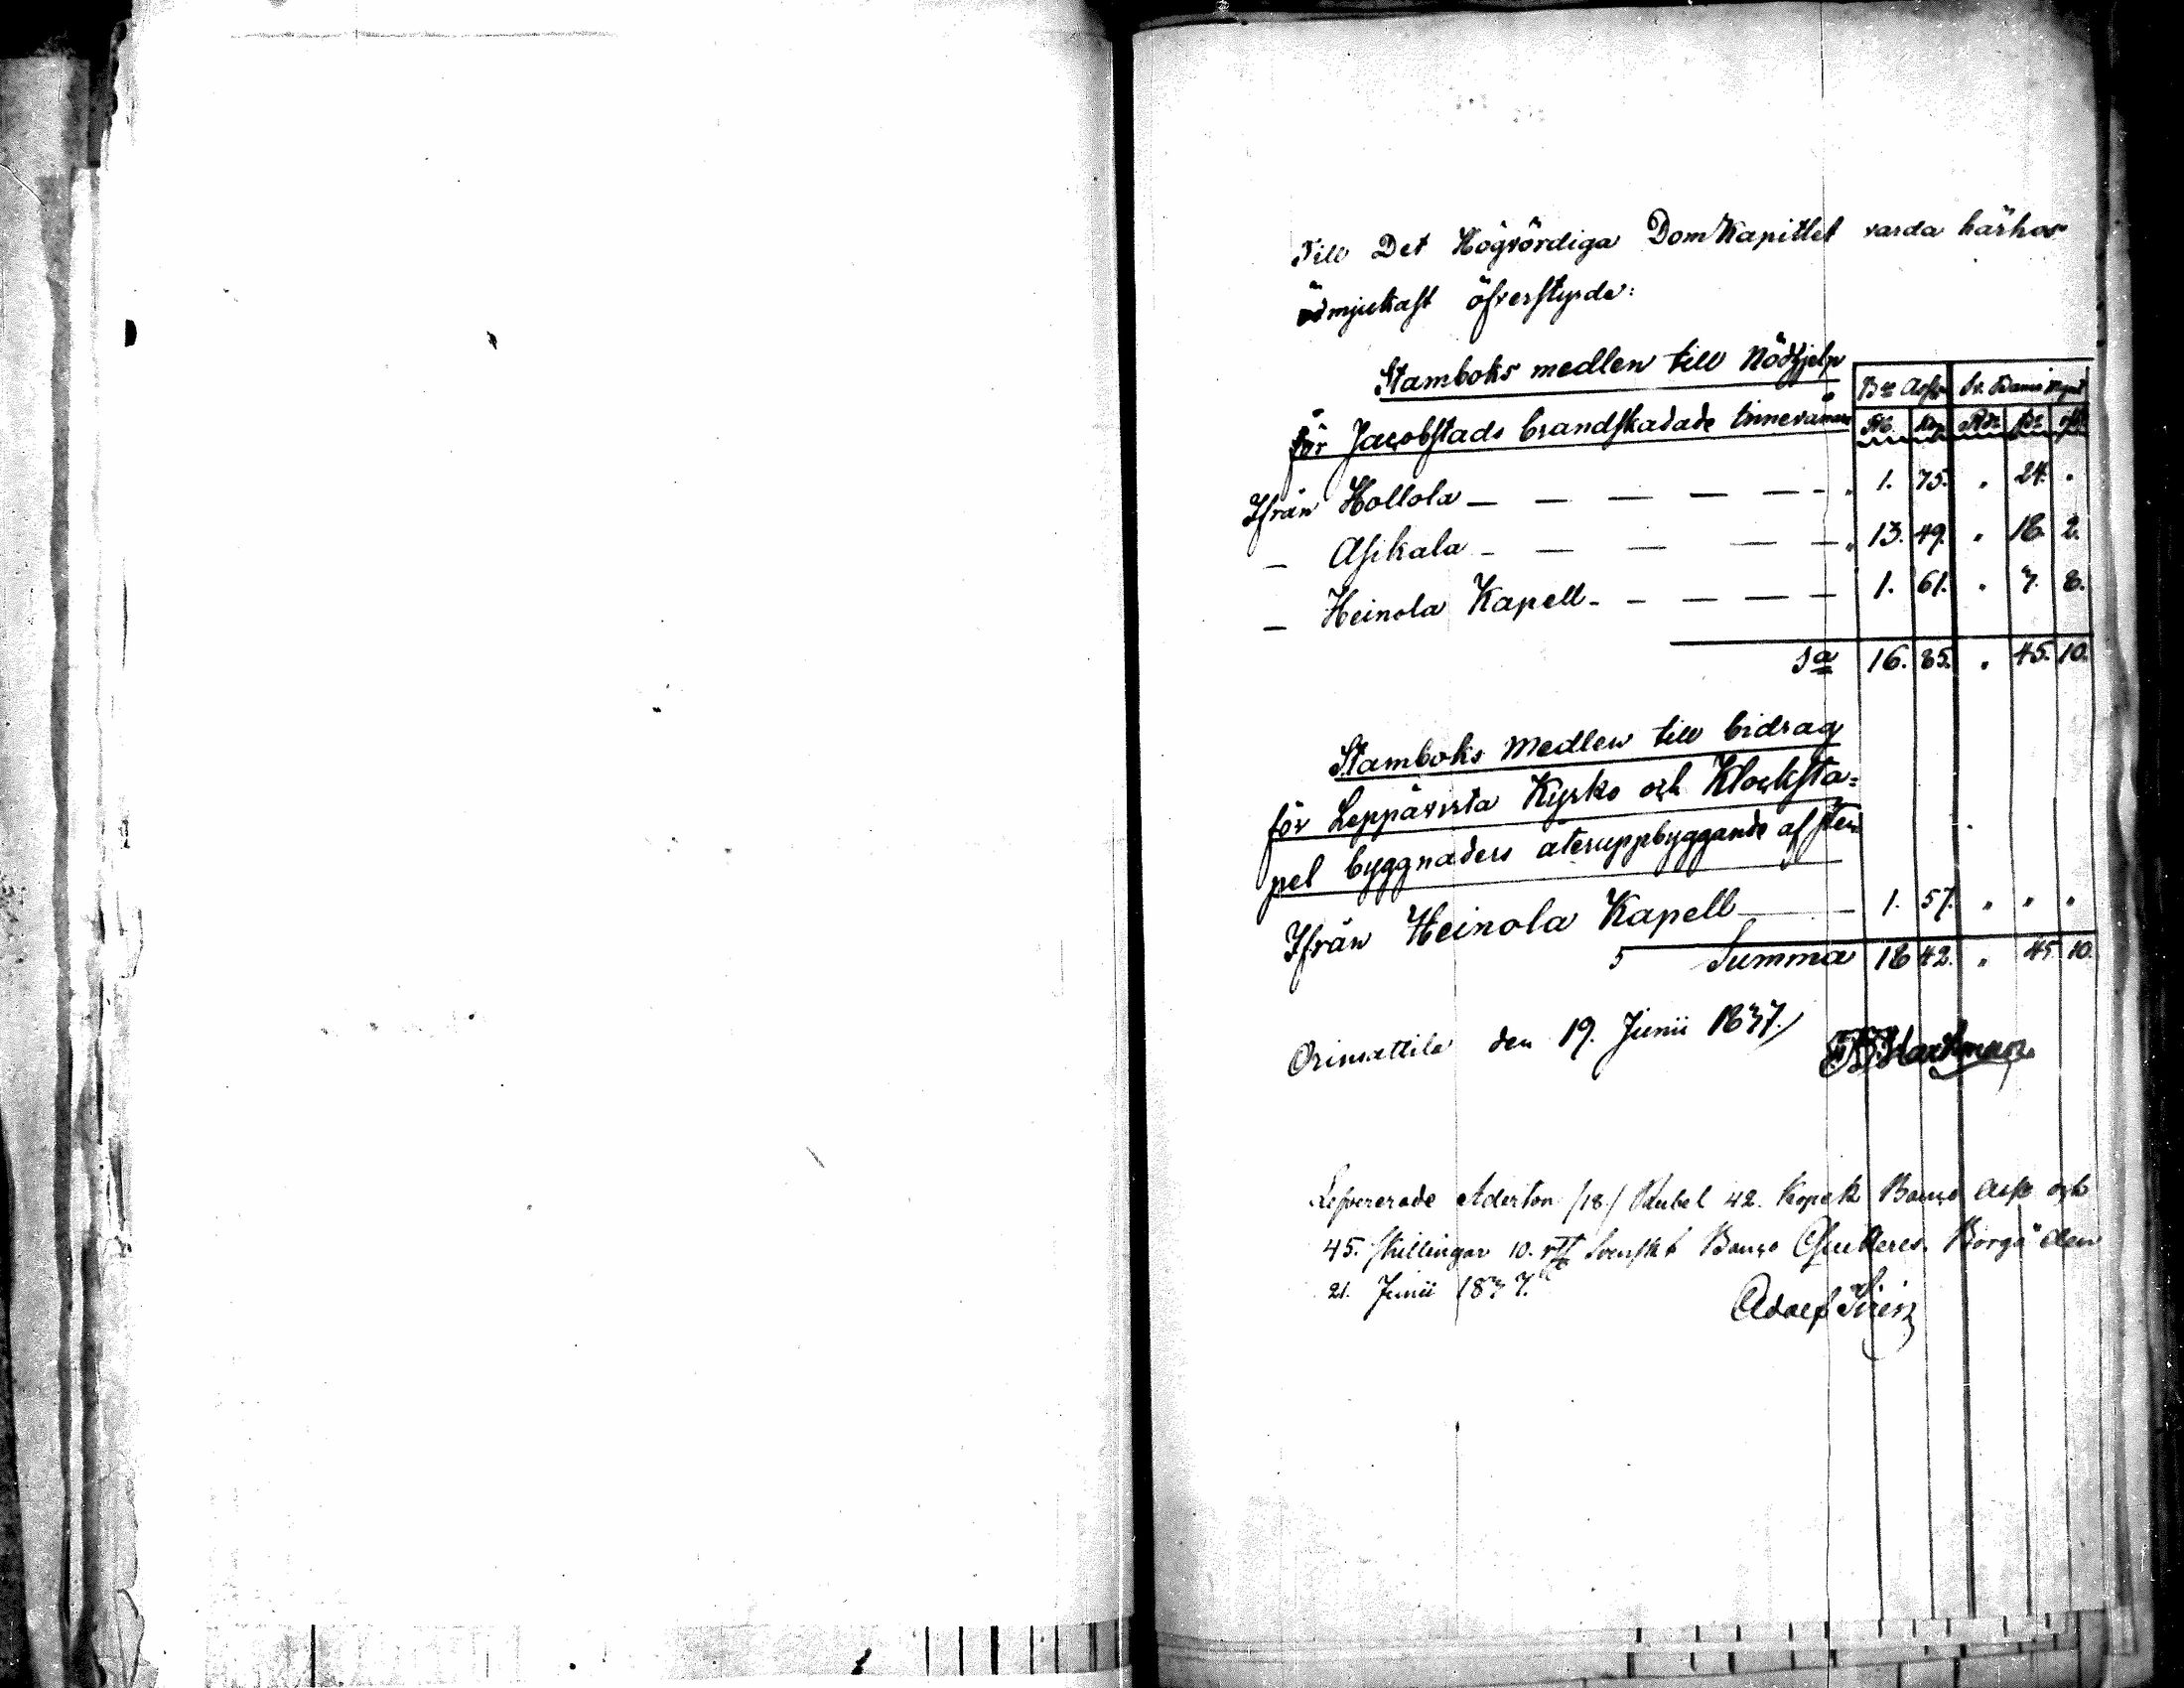 Till Det Högvördiga DomKapitlet varda härhos
ödmjukast öfverstyrde:
Stamboks medlen till Nödhjelp
för Jacobstads brandskadade Innevånare
Bco Assr Sv. Banco mynt
Rb. Kop Rdr sk. rst
Ifrån Hollola — — — — — 1. 75. " 24. "
— Asikala — — — — — 13. 49. " 18. 2.
— Heinola Kapell — — — — 1. 61. " 7. 8.
Sa 16. 85. " 45. 10.
Stamboks Medlen till bidrag
för Leppävirta Kyrko och Klocksta-
pel byggnaders återuppbyggande af sten
Ifrån Heinola Kapell — — 1. 57. " " "
Summa 18 42. " 45. 10.
Orimattila den 19. Junii 1837.
Hartman
Lefvererade Aderton /18./ Rubel 42. Kopek Banco Assr och
45. skillingar 10. rst Svenskt Banco qvitteres. Borgå den
21. Junii 1837.
Adolf Sirén